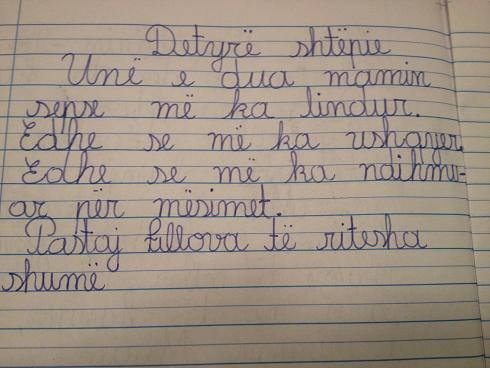 Detyrë shtëpie
Unë e dua mamin
sepse më ka lindur.
Edhe se më ka ushqyer.
Edhe se më ka ndihmu-
ar për mësimet.
Pastaj fillova të ritesha
shumë